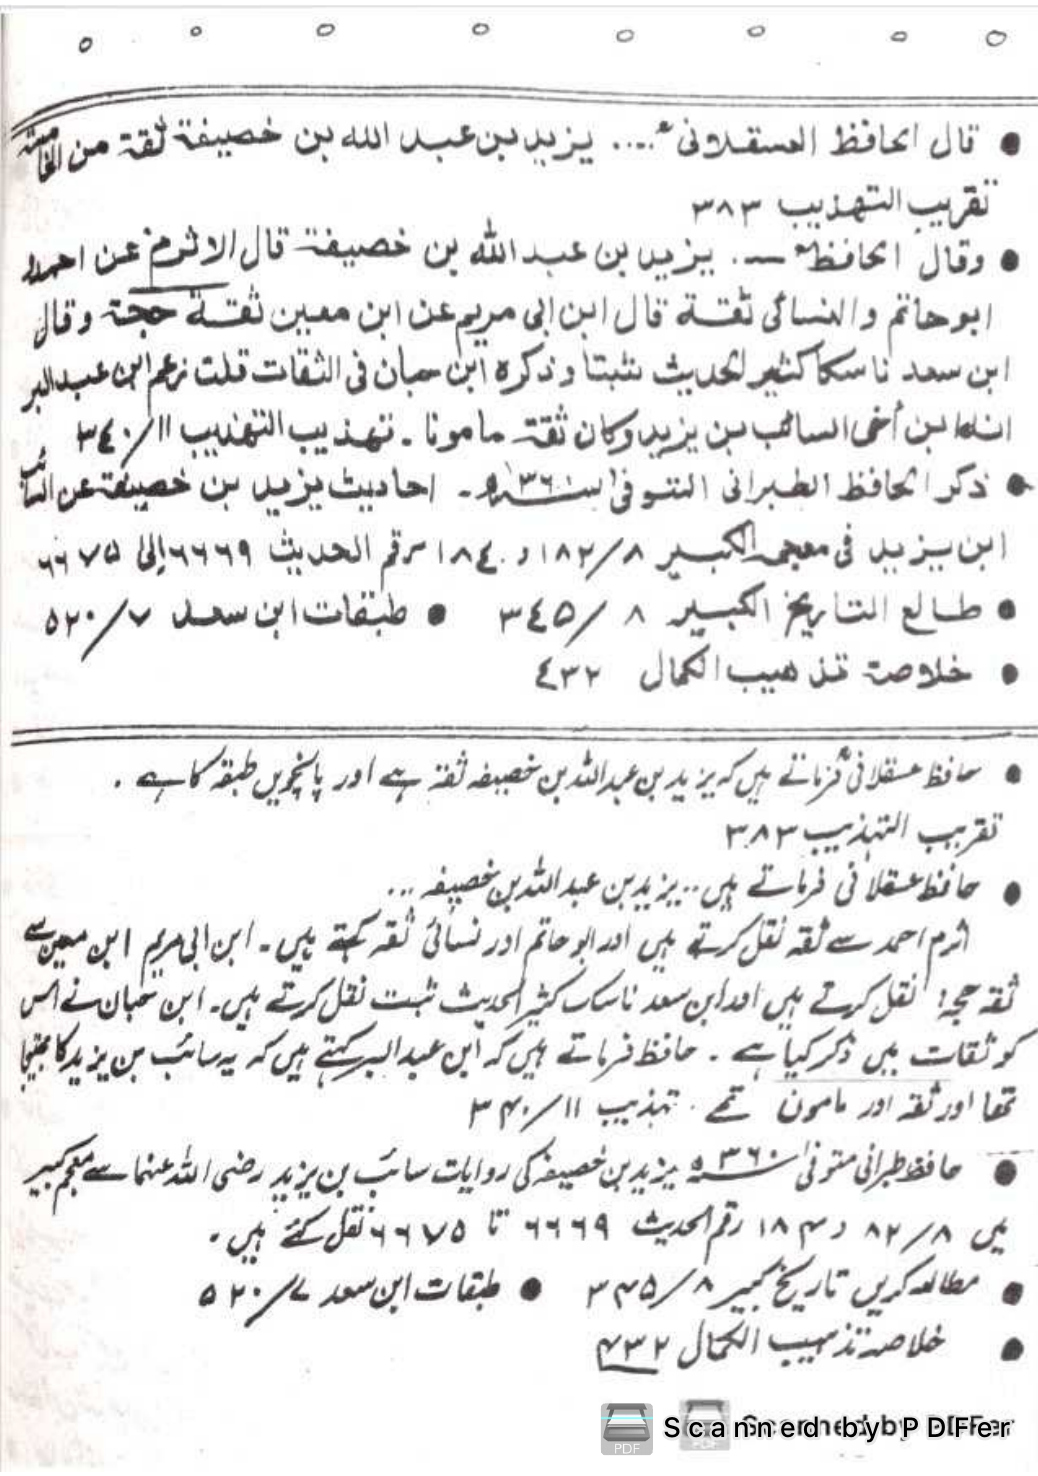 ● قال الحافظ العسقلانی ؒ .... یزید بن عبد الله بن خصیفة ثقة من الخامسة
تقریب التهذیب ٣٨٣
● وقال الحافظ ؒ ـ . یزید بن عبد الله بن خصیفة قال الاثرم عن احمد و
ابو حاتم والنسائی ثقة قال ابن ابی مریم عن ابن معین ثقة حجة وقال
ابن سعد ناسکا کثیر الحدیث ثبتا وذکره ابن حبان فی الثقات قلت زعم ابن عبد البر
انه ابن أخی السائب بن یزید وکان ثقة مامونا ـ تهذیب التهذیب ١١/٣٤٠
● ذکر الحافظ الطبرانی المتوفی ٣٦٠ھ ـ احادیث یزید بن خصیفة عن السائب
ابن یزید فی معجمه الکبیر ٨/١٨٢ و ١٨٤ رقم الحدیث ٦٦٦٩ إلی ٦٦٧٥
● طالع التاریخ الکبیر ٨/٣٤٥ ● طبقات ابن سعد ٧/٥٢٠
● خلاصة تذهیب الکمال ٤٣٢
● حافظ عسقلانیؒ فرماتے ہیں کہ یزید بن عبد اللہ بن خصیفہ ثقہ ہے اور پانچویں طبقہ کا ہے .
تقریب التہذیب ٣٨٣
● حافظ عسقلانی فرماتے ہیں .. یزید بن عبد اللہ بن خصیفہ ...
اثرم احمد سے ثقہ نقل کرتے ہیں اور ابو حاتم اور نسائی ثقہ کہتے ہیں ۔ ابن ابی مریم ابن معین سے
ثقہ حجۃ نقل کرتے ہیں اور ابن سعد ناسک کثیر الحدیث ثبت نقل کرتے ہیں ۔ ابن حبان نے اس
کو ثقات میں ذکر کیا ہے ۔ حافظ فرماتے ہیں کہ ابن عبد البر کہتے ہیں کہ یہ سائب بن یزید کا بھتیجا
تھا اور ثقہ اور مامون تھے . تہذیب ١١/٣۴٠
● حافظ طبرانی متوفی ٣٦٠ھ یزید بن خصیفہ کی روایات سائب بن یزید رضی اللہ عنہما سے معجم کبیر
میں ٨/٨٢ و ١٨۴ رقم الحدیث ٦٦٦٩ تا ٦٦٧٥ نقل کئے ہیں ۔
● مطالعہ کریں تاریخ کبیر ٨/٣۴٥ ● طبقات ابن سعد ٧/٥٢٠
● خلاصۃ تذہیب الکمال ۴٣٢
Scanned by PDFer
Scanned by PDFer